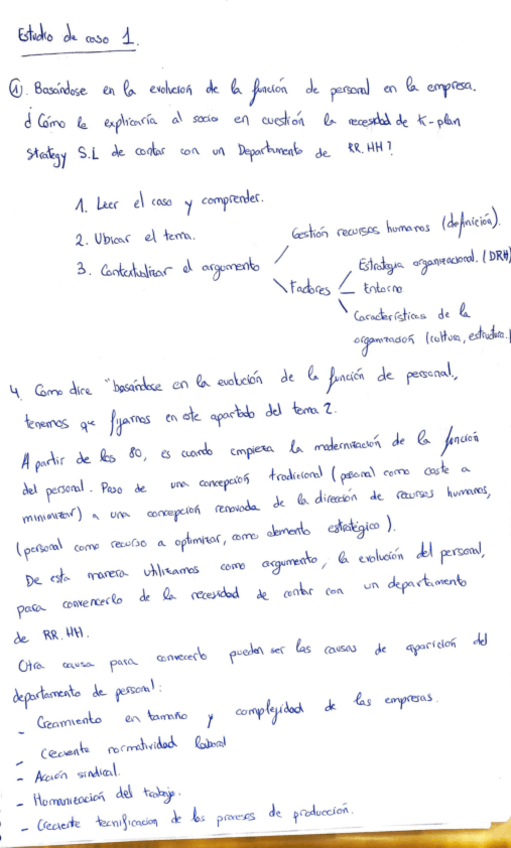 Estudio de caso 1.
①. Basándose en la evolución de la función de personal en la empresa.
¿Cómo le explicaría al socio en cuestión la necesidad de K-plan
Strategy S.L de contar con un Departamento de RR.HH?
1. Leer el caso y comprender.
2. Ubicar el tema.
Gestión recursos humanos (definición).
3. Contextualizar el argumento
Estrategia organizacional. (DRH)
Factores
Entorno
Características de la
organización (cultura, estructura.)
4. Como dice "basándose en la evolución de la función de personal,
tenemos que fijarnos en este apartado del tema 2.
A partir de los 80, es cuando empieza la modernización de la función
del personal. Paso de una concepción tradicional (personal como coste a
minimizar) a una concepción renovada de la dirección de recursos humanos,
(personal como recurso a optimizar, como elemento estratégico).
De esta manera utilizamos como argumento, la evolución del personal,
para convencerlo de la necesidad de contar con un departamento
de RR.HH.
Otra causa para convecerlo pueden ser las causas de aparición del
departamento de personal:
- Crecimiento en tamaño y complejidad de las empresas.
- Creciente normatividad laboral
- Acción sindical.
- Humanización del trabajo.
- Creciente tecnificación de los procesos de producción.